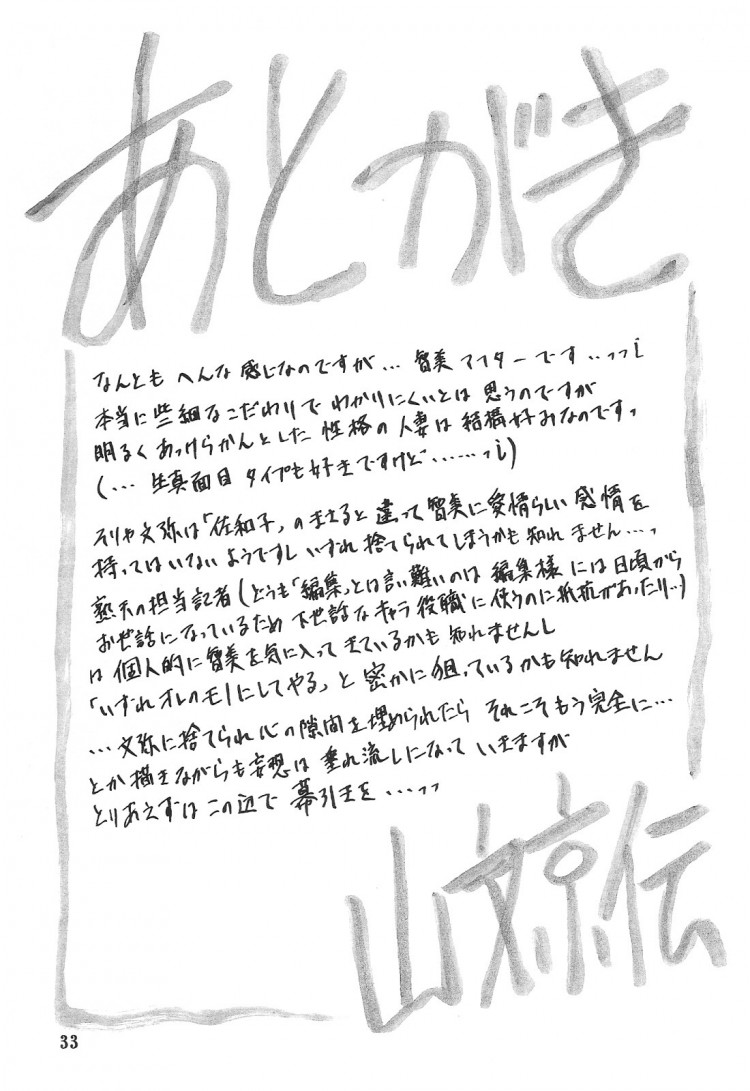 あとがき
なんとも へんな 感じなのですが… 智美 アフターです…っっ¡
本当に些細なこだわりで わかりにくいとは 思うのですが
明るく あっけらかんとした 性格の 人妻は 結構好みなのですっ
(… 生真面目 タイプも好きですけど………っ¡)
そりゃ文弥は「佐和子」の
違って智美に愛情らしい 感情を
持ってはいないようですし いずれ 捨てられてしまうかも知れません…っ
の担当記者(どうも「編集」とは言い難いのは 編集様 には日頃から
お世話になっているため 下世話なキャラ 役職に 使うのに抵抗があったり…)
は 個人的に智美を気に入って きているかも 知れませんし
「いずれオレのモノにしてやる」と 密かに 狙っているかも知れません
…文弥に捨てられ 心の隙間を埋められたら それこそ もう 完全に…
とか 描きながらも 妄想は 垂れ流しになって いきますが
とりあえずは この辺で 幕引きを…っっ
山文京伝
33